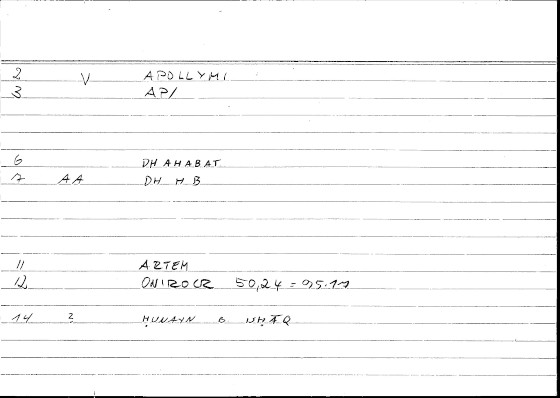 2 V APOLLYMI
3 AP/
6 DHAHABAT
7 AA DH H B
11 ARTEM
12 ONIROCR 50,24 = 95.17
14 ? ḤUNAYN B ISḤĀQ